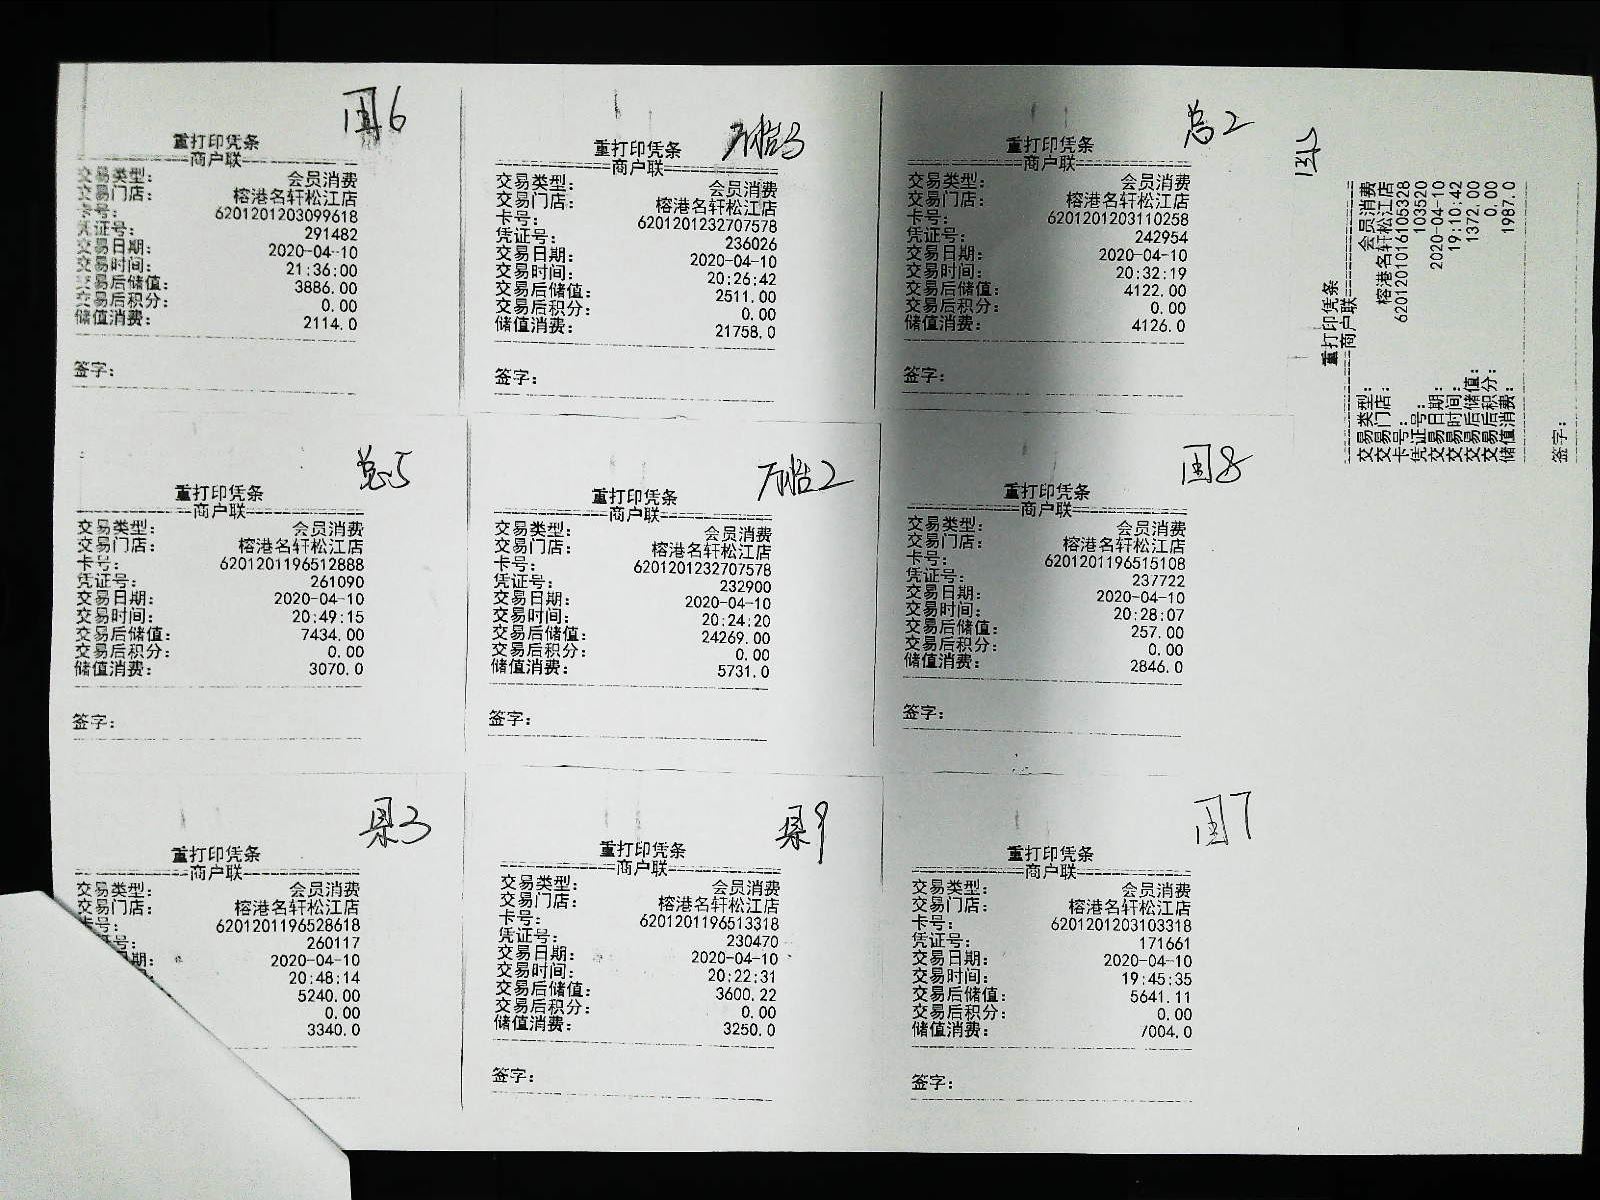 国6
重打印凭条
商户联
交易类型: 会员消费
交易门店: 榕港名轩松江店
卡号: 6201201203099618
凭证号: 291482
交易日期: 2020-04-10
交易时间: 21:36:00
交易后储值: 3886.00
交易后积分: 0.00
储值消费: 2114.0
签字:
3
重打印凭条
商户联
交易类型: 会员消费
交易门店: 榕港名轩松江店
卡号: 6201201232707578
凭证号: 236026
交易日期: 2020-04-10
交易时间: 20:26:42
交易后储值: 2511.00
交易后积分: 0.00
储值消费: 21758.0
签字:
总2
重打印凭条
商户联
交易类型: 会员消费
交易门店: 榕港名轩松江店
卡号: 6201201203110258
凭证号: 242954
交易日期: 2020-04-10
交易时间: 20:32:19
交易后储值: 4122.00
交易后积分: 0.00
储值消费: 4126.0
签字:
重打印凭条
商户联
交易类型: 会员消费
交易门店: 榕港名轩松江店
卡号: 6201201016105328
凭证号: 103520
交易日期: 2020-04-10
交易时间: 19:10:42
交易后储值: 1372.00
交易后积分: 0.00
储值消费: 1987.0
签字:
总5
重打印凭条
商户联
交易类型: 会员消费
交易门店: 榕港名轩松江店
卡号: 6201201196512888
凭证号: 261090
交易日期: 2020-04-10
交易时间: 20:49:15
交易后储值: 7434.00
交易后积分: 0.00
储值消费: 3070.0
签字:
2
重打印凭条
商户联
交易类型: 会员消费
交易门店: 榕港名轩松江店
卡号: 6201201232707578
凭证号: 232900
交易日期: 2020-04-10
交易时间: 20:24:20
交易后储值: 24269.00
交易后积分: 0.00
储值消费: 5731.0
签字:
国8
重打印凭条
商户联
交易类型: 会员消费
交易门店: 榕港名轩松江店
卡号: 6201201196515108
凭证号: 237722
交易日期: 2020-04-10
交易时间: 20:28:07
交易后储值: 257.00
交易后积分: 0.00
储值消费: 2846.0
签字:
3
重打印凭条
商户联
交易类型: 会员消费
交易门店: 榕港名轩松江店
卡号: 6201201196528618
号: 260117
期: 2020-04-10
20:48:14
5240.00
0.00
3340.0
9
重打印凭条
商户联
交易类型: 会员消费
交易门店: 榕港名轩松江店
卡号: 6201201196513318
凭证号: 230470
交易日期: 2020-04-10
交易时间: 20:22:31
交易后储值: 3600.22
交易后积分: 0.00
储值消费: 3250.0
签字:
国7
重打印凭条
商户联
交易类型: 会员消费
交易门店: 榕港名轩松江店
卡号: 6201201203103318
凭证号: 171661
交易日期: 2020-04-10
交易时间: 19:45:35
交易后储值: 5641.11
交易后积分: 0.00
储值消费: 7004.0
签字: